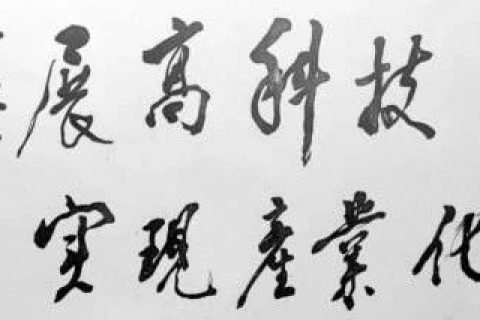 展高科技
实现產業化